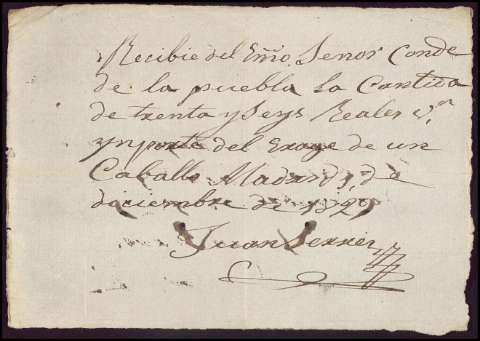 Recibie del Exmo. Senor Conde
de la puebla la Cantida
de trenta y Seys Reales vn.
ynporte del Eraxe de un
Caballo Madrid de
diciembre de
Juan Ferrer